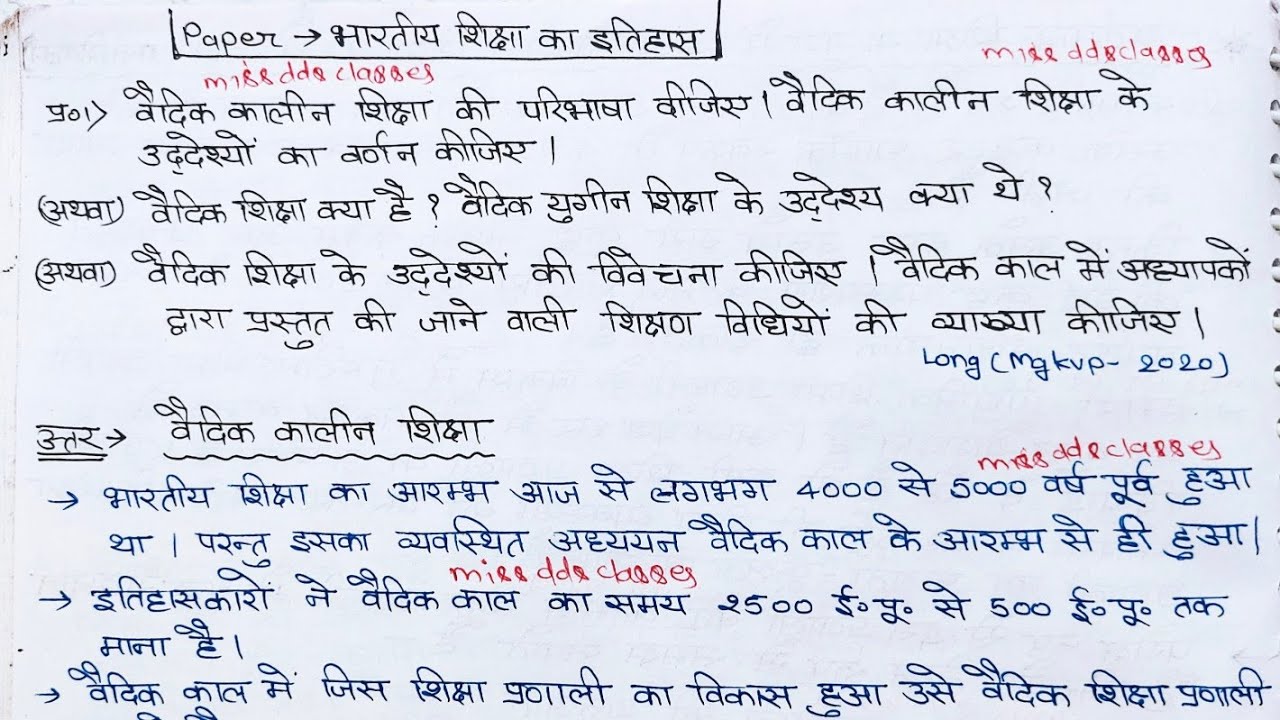 Paper → भारतीय शिक्षा का इतिहास
miss dds classes
miss dds classes
प्र०1> वैदिक कालीन शिक्षा की परिभाषा दीजिए। वैदिक कालीन शिक्षा के
उद्देश्यों का वर्णन कीजिए।
(अथवा) वैदिक शिक्षा क्या है? वैदिक युगीन शिक्षा के उद्देश्य क्या थे?
(अथवा) वैदिक शिक्षा के उद्देश्यों की विवेचना कीजिए। वैदिक काल में अध्यापकों
द्वारा प्रस्तुत की जाने वाली शिक्षण विधियों की व्याख्या कीजिए।
Long (Mgkvp- 2020)
उत्तर→ वैदिक कालीन शिक्षा
miss dds classes
→ भारतीय शिक्षा का आरम्भ आज से लगभग 4000 से 5000 वर्ष पूर्व हुआ
था। परन्तु इसका व्यवस्थित अध्ययन वैदिक काल के आरम्भ से ही हुआ।
miss dds classes
→ इतिहासकारों ने वैदिक काल का समय 2500 ई०पू० से 500 ई०पू० तक
माना है।
→ वैदिक काल में जिस शिक्षा प्रणाली का विकास हुआ उसे वैदिक शिक्षा प्रणाली